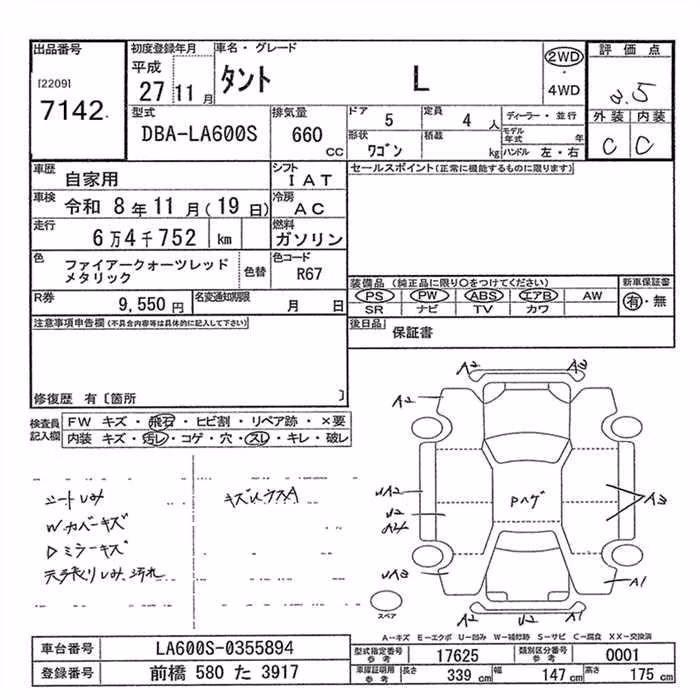 出品番号
[2209]
7142
初度登録年月
平成
27 11 月
車名・グレード
タント L
2WD
・
4WD
評価点
3.5
外装 内装
C C
型式
DBA-LA600S
排気量
660
CC
ドア
5
定員
4 人
形状
ワゴン
積載
kg
ディーラー・並行
モデル年式 年
ハンドル 左・右
車歴
自家用
シフト
IAT
車検
令和 8 年 11 月 (19 日)
冷房
AC
走行
6万4千752 km
燃料
ガソリン
色
ファイアークォーツレッド
メタリック
色替
色コード
R67
R券
9,550 円
名変通知期限
月 日
セールスポイント(正常に機能するものに限ります)
装備品 (純正品に限り○をつけてください)
PS PW ABS エアB AW
SR ナビ TV カワ
新車保証書
有・無
後日品
保証書
注意事項申告欄(不具合内容等は具体的に記入して下さい)
修復歴 有〔箇所 〕
検査員
記入欄
FW キズ・飛石・ヒビ割・リペア跡・×要
内装 キズ・汚レ・コゲ・穴・スレ・キレ・破レ
シートしみ
Wカバーキズ
Dミラーキズ
天張りしみ、汚れ
A2
A2
A2
A3
UA2
U2
UA3
Pハゲ
A1
A2 U2 A1
スペア
A−キズ E−エクボ U−凹み W−補修跡 S−サビ C−腐食 XX−交換済
車台番号
LA600S-0355894
登録番号
前橋 580 た 3917
型式指定番号
参考
17625
類別区分番号
参考
0001
車庫証明用
参考
長さ
339 cm
幅
147 cm
高さ
175 cm